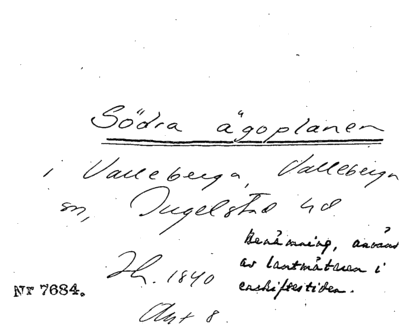 Södra ägoplanen
i Valleberga, Valleberga
sn, Ingelstad hd
Benämning, använd
av lantmätaren i
enskiftestiden.
Jh. 1840
Nr 7684.
Akt 8.